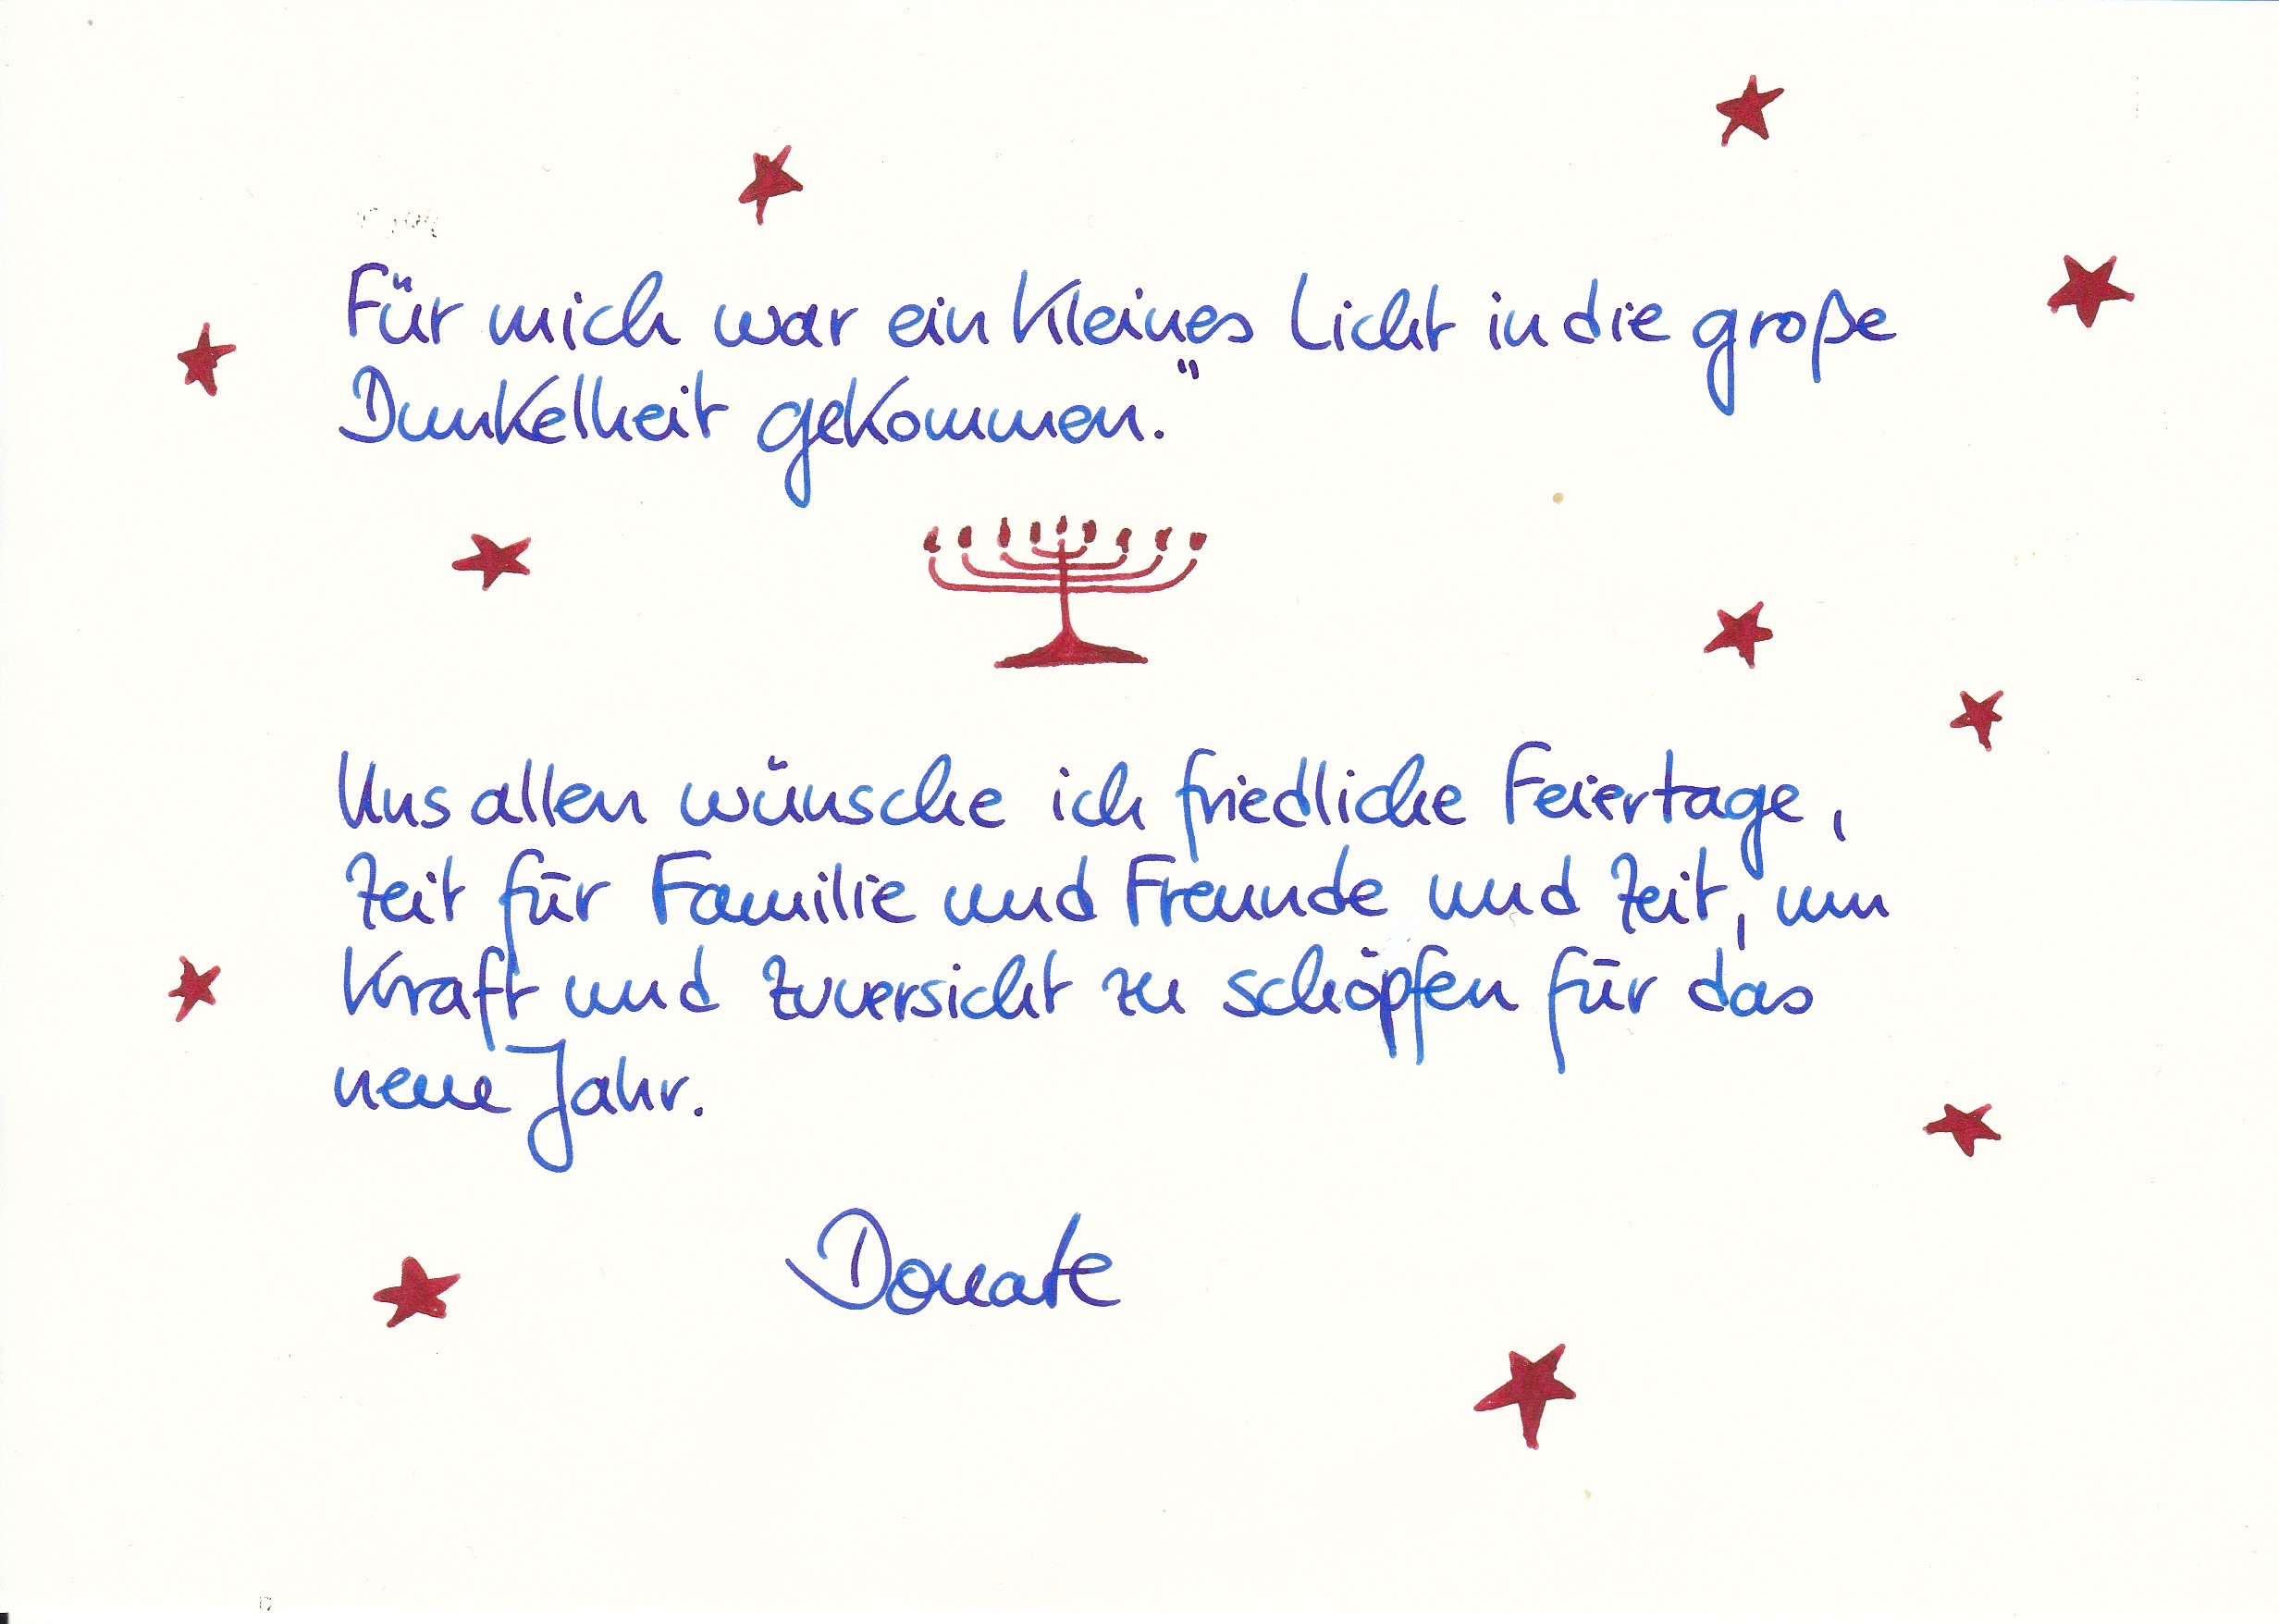 Für mich war ein kleines Licht in die große
Dunkelheit gekommen."
Uns allen wünsche ich friedliche Feiertage,
Zeit für Familie und Freunde und Zeit, um
Kraft und Zuversicht zu schöpfen für das
neue Jahr.
Donate